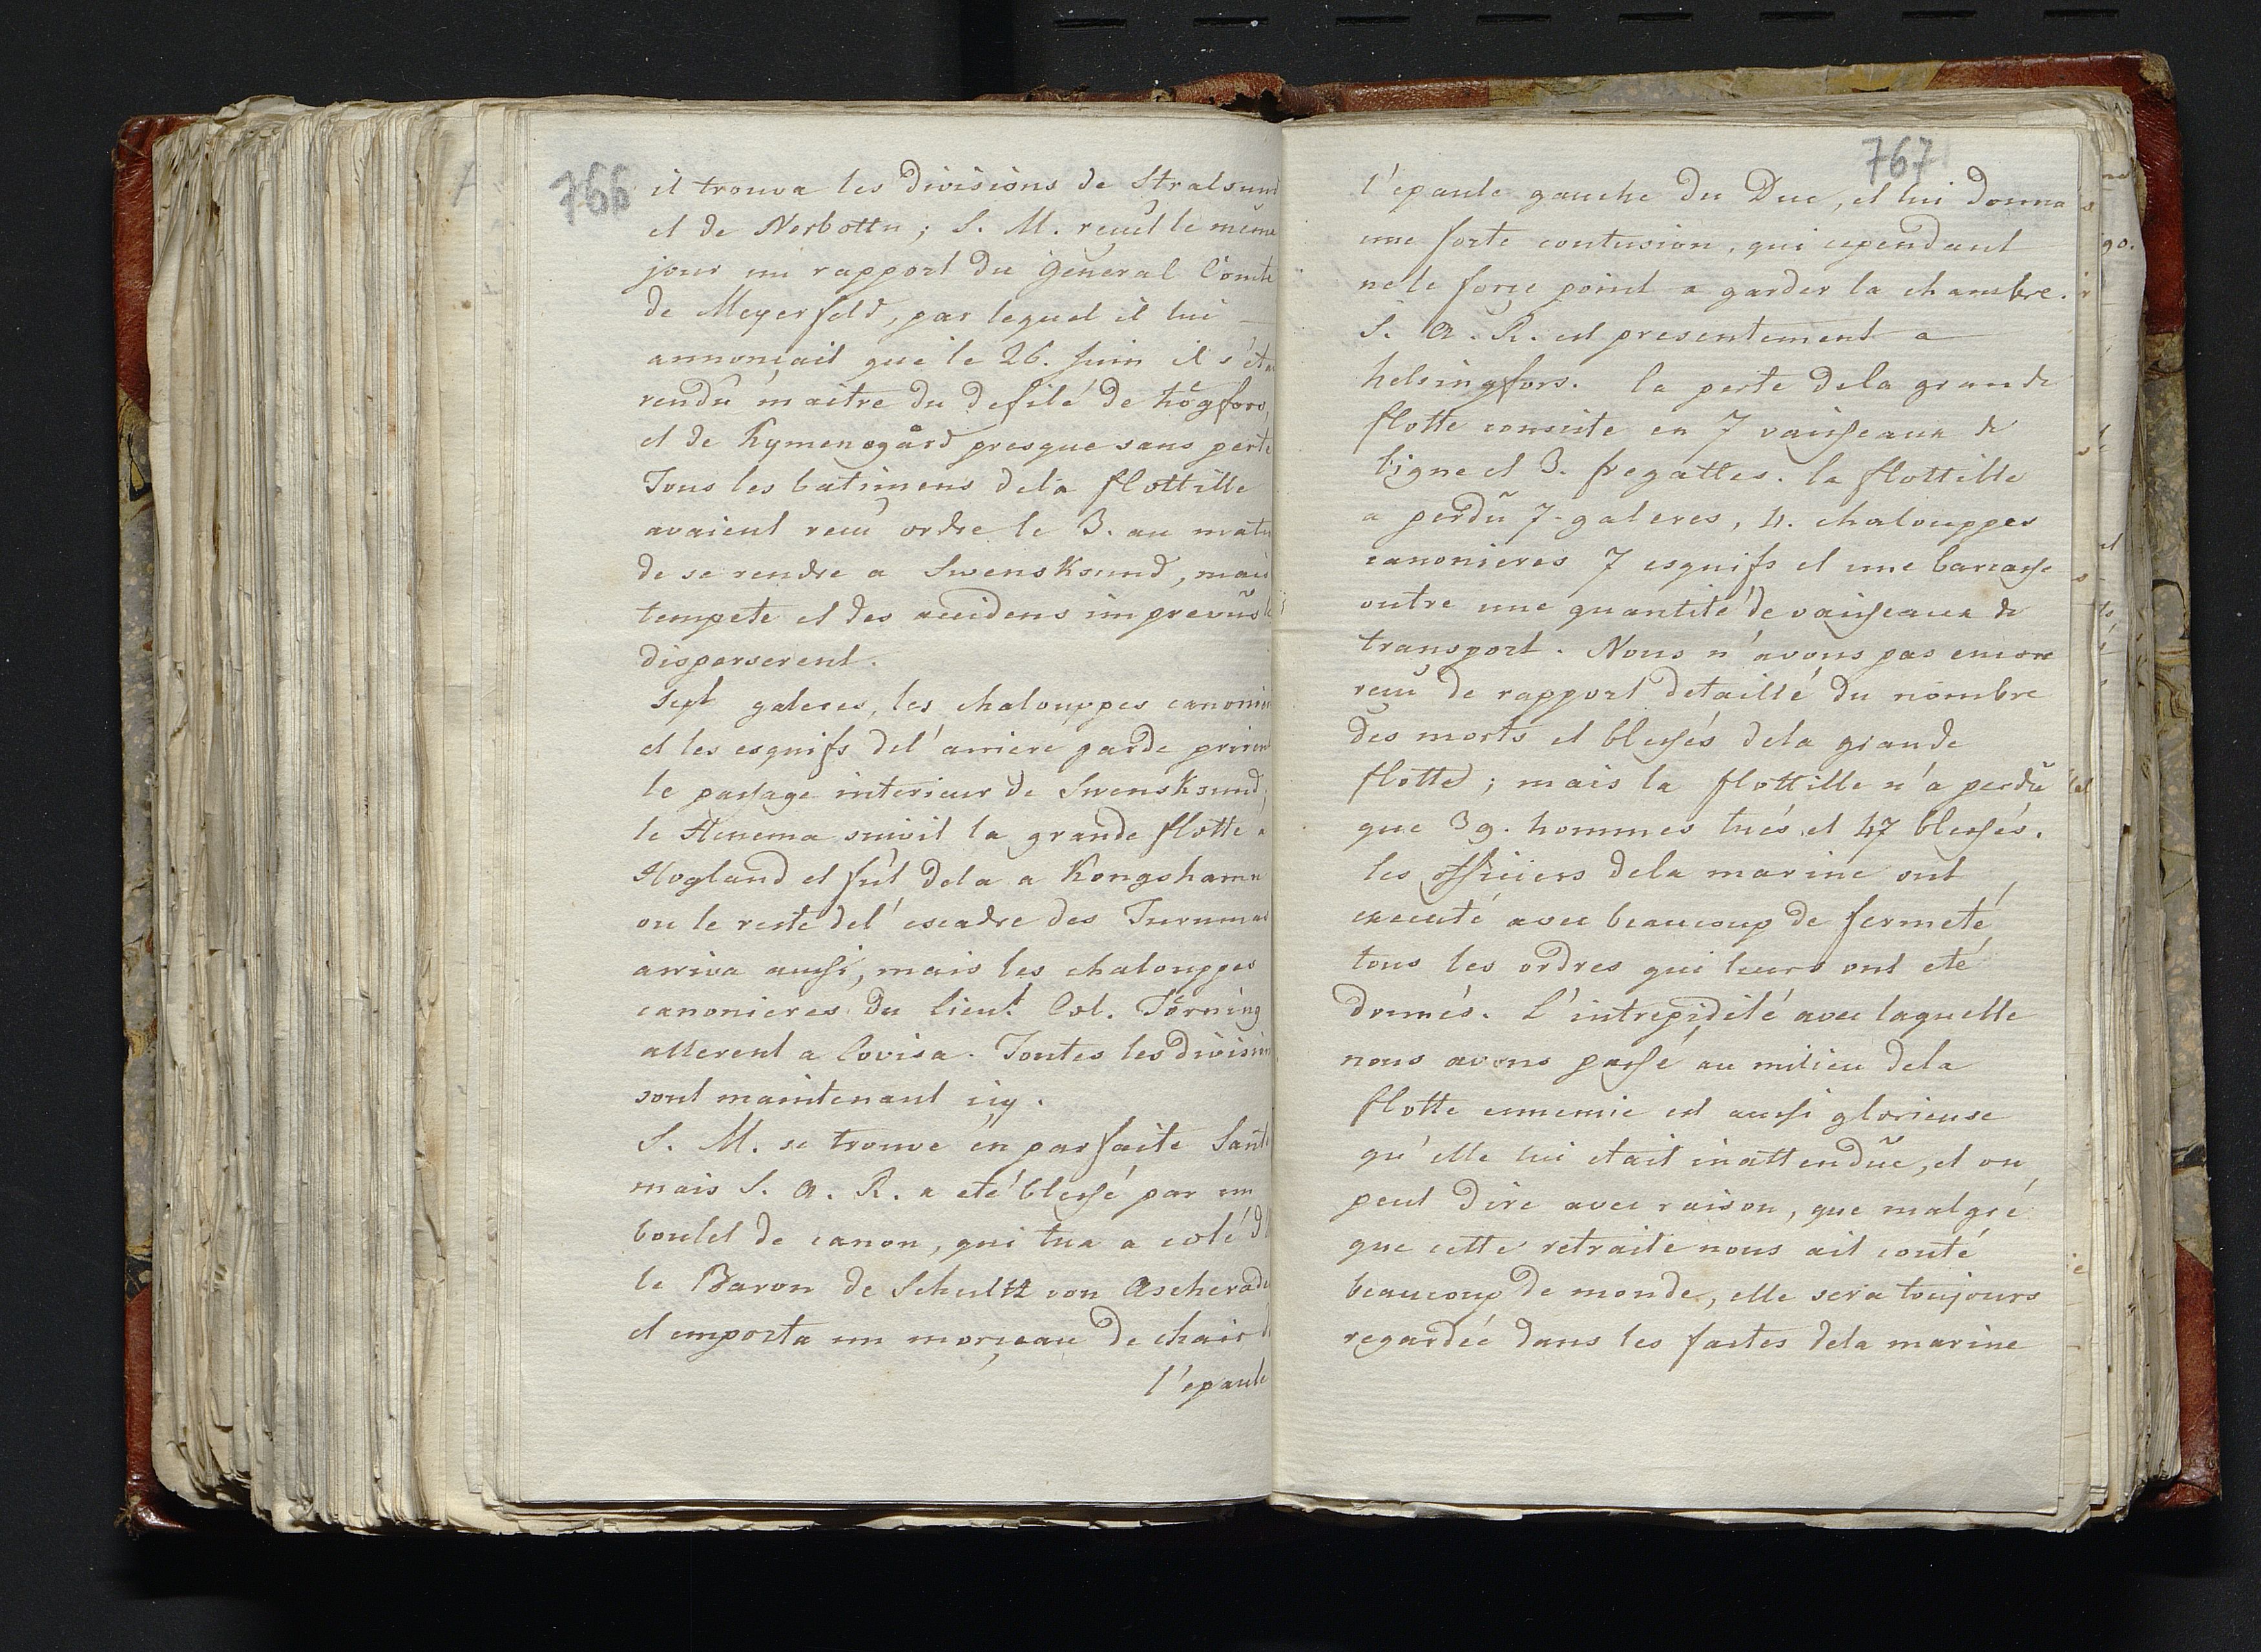 766
il trouva les divisions de Stralsund
et de Norbottn; S. M. reçut le même
jour un rapport du General Comte
de Meyerfeld, par lequel il lui
annonçait que le 26. Juin il s'etai
rendû maitre du defilé de högfors,
et de Kymenogård presque sans perte
Tous les batimens dela flottille
avaient reçu ordre le 3. au matin
de se rendre a Swensksund, mais
tempete et des accidens imprevûs
disperserent.
Sept galeres, les chalouppes canonier
et les esquifs del'arriere garde prirent
le passage interieur de Swensksund;
le Henema suivit la grande flotte a
Hogland et fut dela a Kongshamn
ou le reste del'escadre des Turumas
arriva aussi, mais les chalouppes
canonieres du lieut. Col. Törning
allerent a Lovisa. Toutes les division
sont maintenant içy.
S. M. se trouve en parfaite Santé
mais S. A. R. a eté blessé par un
boulet de canon, qui tua a coté de
le Baron de Schultz von Ascherade
et emporta un morçeau de chair de
l'epaule
767
l'epaule gauche du Duc, et lui donna
une forte contusion, qui cependant
ne le forçe point a garder la chambre.
S. A. R. est presentement a
helsingfors. la perte dela grande
flotte consiste en 7 vaisseaux de
ligne et 3. fregattes. la flottille
a perdû 7 galeres, 4. chalouppes
canonieres 7 esquifs et une barcasse
outre une quantité de vaisseaux de
transport. Nous n'avons pas encore
reçu de rapport detaillé du nombre
des morts et blessés dela grande
flotte; mais la flottille n'a perdû
que 39. hommes tués et 47 blessés.
les officiers dela marine ont
executé avec beaucoup de fermeté
tous les ordres qui leurs ont eté
donnés. L'intrepidité avec laquelle
nous avons passé au milieu dela
flotte ennemie est aussi glorieuse
qu'elle lui etait inattendûe, et on
peut dire avec raison, que malgré
que cette retraite nous ait couté
beaucoup de monde, elle sera toujours
regardée dans les fastes dela marine